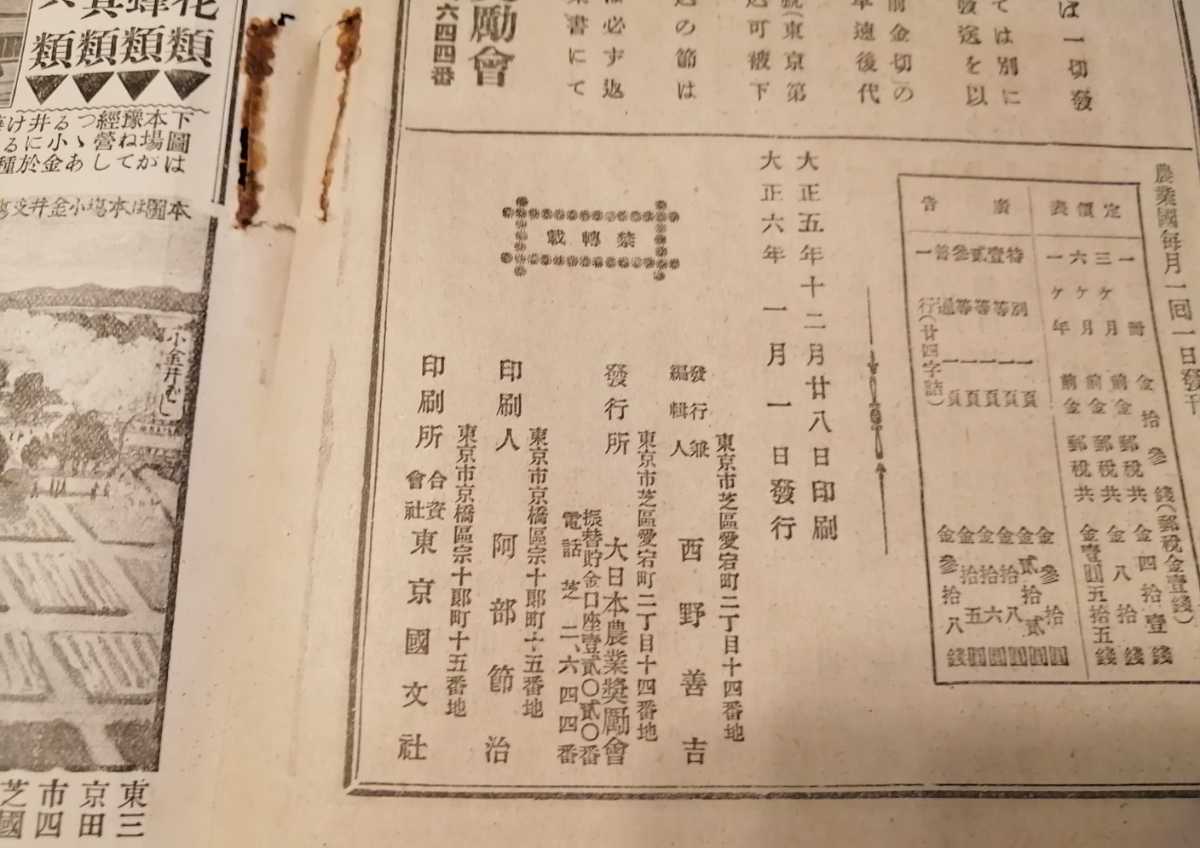 は一切發
ては別に
發送を以
前金切の
車遠後代
號(東京第
込可被下
込の節は
は必ず返
業書にて
奬勵會
六四四番
農業國每月一回一日發刊
定價表
一冊 金拾參錢(郵稅金壹錢)
三ケ月 前金郵稅共 金四拾壹錢
六ケ月 前金郵稅共 金八拾錢
一ケ年 前金郵稅共 金壹圓五拾五錢
廣告
特別 一頁 金參拾圓
壹等 一頁 金貳拾貳圓
貳等 一頁 金拾八圓
參等 一頁 金拾六圓
普通 一頁 金拾五圓
一行(廿四字詰) 金參拾八錢
大正五年十二月廿八日印刷
大正六年一月一日發行
禁轉載
東京市芝區愛宕町二丁目十四番地
發行兼編輯人 西野善吉
東京市芝區愛宕町二丁目十四番地
發行所 大日本農業奬勵會
振替貯金口座壹貳〇貳〇番
電話芝二、六四四番
東京市京橋區宗十郞町十五番地
印刷人 阿部節治
東京市京橋區宗十郞町十五番地
印刷所 合資會社 東京國文社
花類
蜂類
類
類
下圖は
本場が
豫ねて
經營し
つゝあ
る小金
井に於
け る種
本圖は本塲小金井
小金井むし
東三
京田
市四
芝國